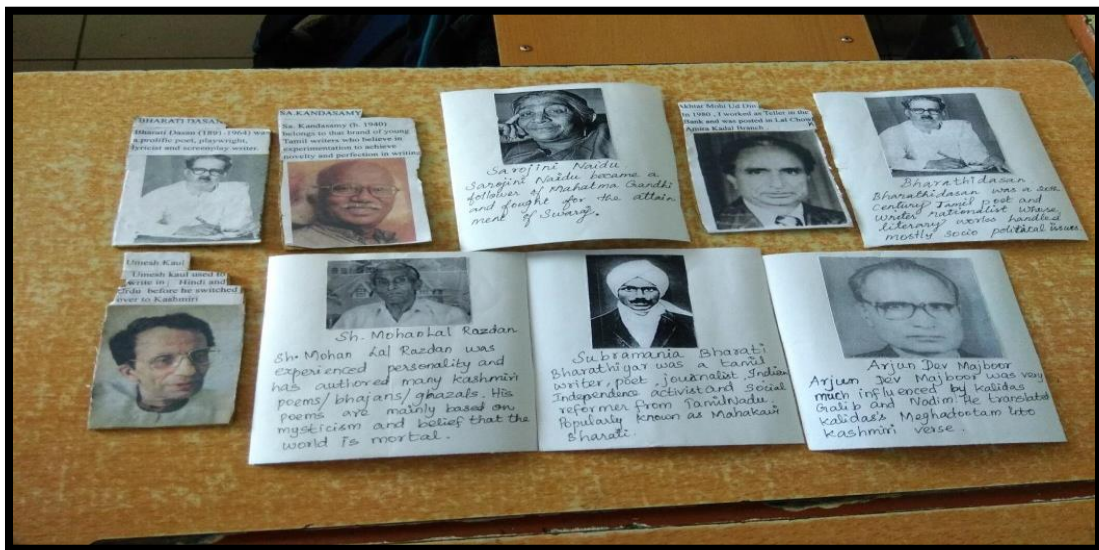 BHARATI DASAN
Bharati Dasan (1891-1964) was
a prolific poet, playwright,
lyricist and screenplay writer.
SA.KANDASAMY
Sa. Kandasamy (b. 1940)
belongs to that brand of young
Tamil writers who believe in
experimentation to achieve
novelty and perfection in writing
Sarojini Naidu
Sarojini Naidu became a
follower of Mahatma Gandhi
and fought for the attain
ment of Swaraj.
Akhtar Mohi Ud Din
In 1980, I worked as Teller in the
Bank and was posted in Lal Chowk
Amira Kadal Branch
Bharathidasan
Bharathidasan was a
century Tamil poet and
writer rationalist whose
literary works handled
mostly socio political issues
Umesh Kaul
Umesh kaul used to
write in Hindi and
Urdu before he switched
over to Kashmiri
Sh. MohanLal Razdan
Sh. Mohan Lal Razdan was
experienced personality and
has authored many Kashmiri
poems/bhajans/ghazals. His
poems are mainly based on
mysticism and belief that the
world is mortal.
Subramania Bharati
Bharathigar was a tamil
writer, poet, journalist, Indian
Independence activist and social
reformer from TamilNadu.
Popularly known as Mahakavi
Bharati.
Arjun Dev Majboor
Arjun Dev Majboor was very
much influenced by kalidas
Galib and Nadim. He translated
kalidas's Meghadootam into
kashmiri verse.